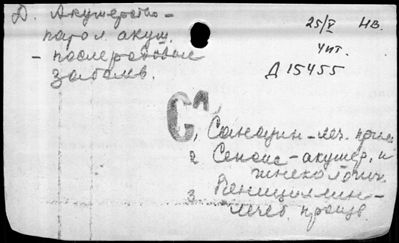 Д. Акушерство –
патол. акуш.
– послеродовые
заболев.
25/V нв.
чит.
Д 15455
Сл
1, Санацин – леч. прим.
2 Сепсис – акушер. и
гинекологич.
3. Пенициллин –
лечеб. произв.